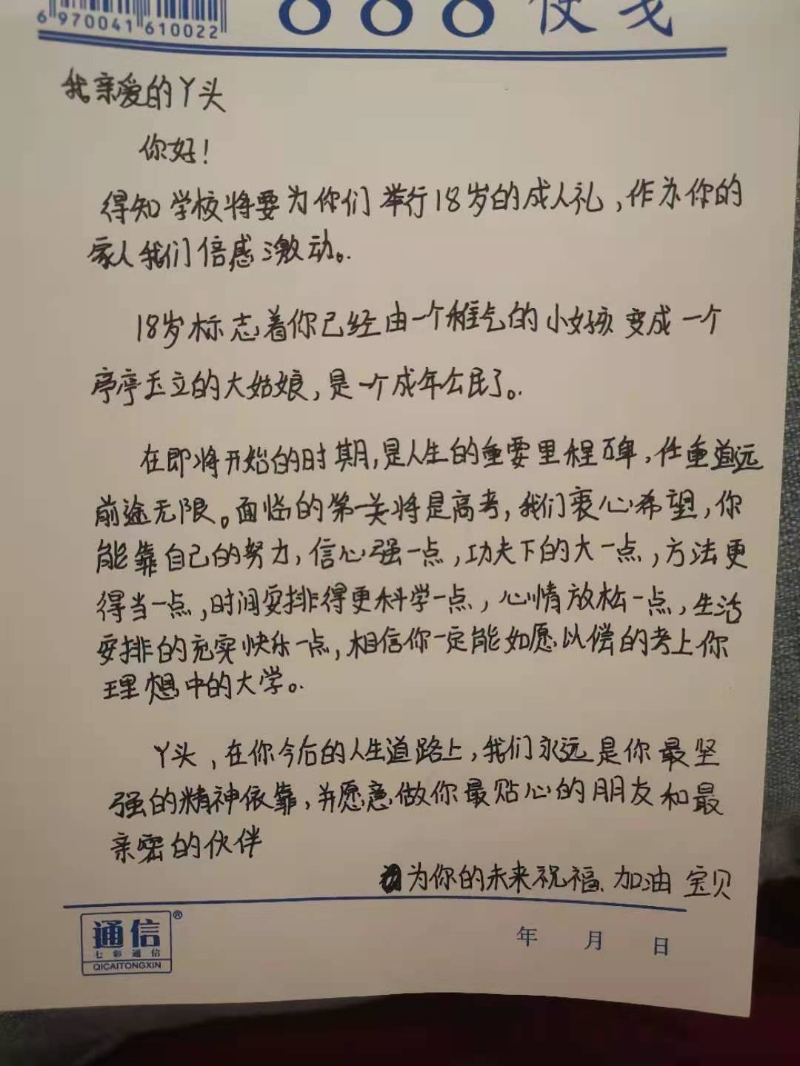 6 970041 610022
888便笺
我亲爱的丫头
你好!
得知学校将要为你们举行18岁的成人礼,作为你的
家人我们倍感激动。
18岁标志着你已经由一个稚气的小女孩变成一个
亭亭玉立的大姑娘,是一个成年公民了。
在即将开始的时期,是人生的重要里程碑,任重道远
前途无限。面临的第一关将是高考,我们衷心希望,你
能靠自己的努力,信心强一点,功夫下的大一点,方法更
得当一点,时间安排得更科学一点,心情放松一点,生活
安排的充实快乐一点,相信你一定能如愿以偿的考上你
理想中的大学。
丫头,在你今后的人生道路上,我们永远是你最坚
强的精神依靠,并愿意做你最贴心的朋友和最
亲密的伙伴
为你的未来祝福、加油 宝贝
通信®
七彩通信
QICAITONGXIN
年 月 日